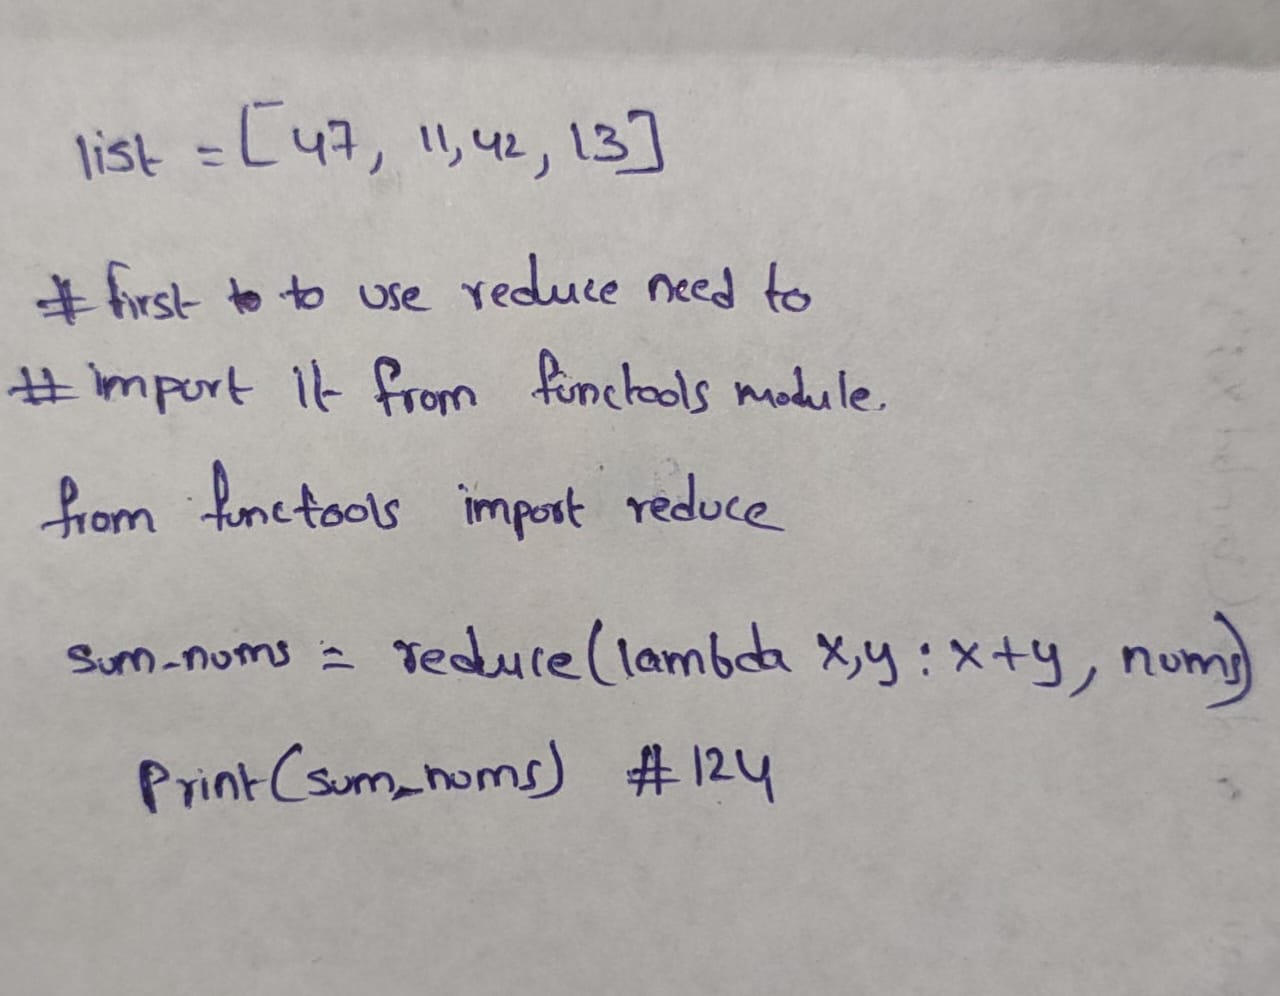 list = [47, 11, 42, 13]
# first to use reduce need to
# import it from functools module.
from functools import reduce
sum_nums = reduce(lambda x,y : x+y, nums)
Print(sum_nums) #124